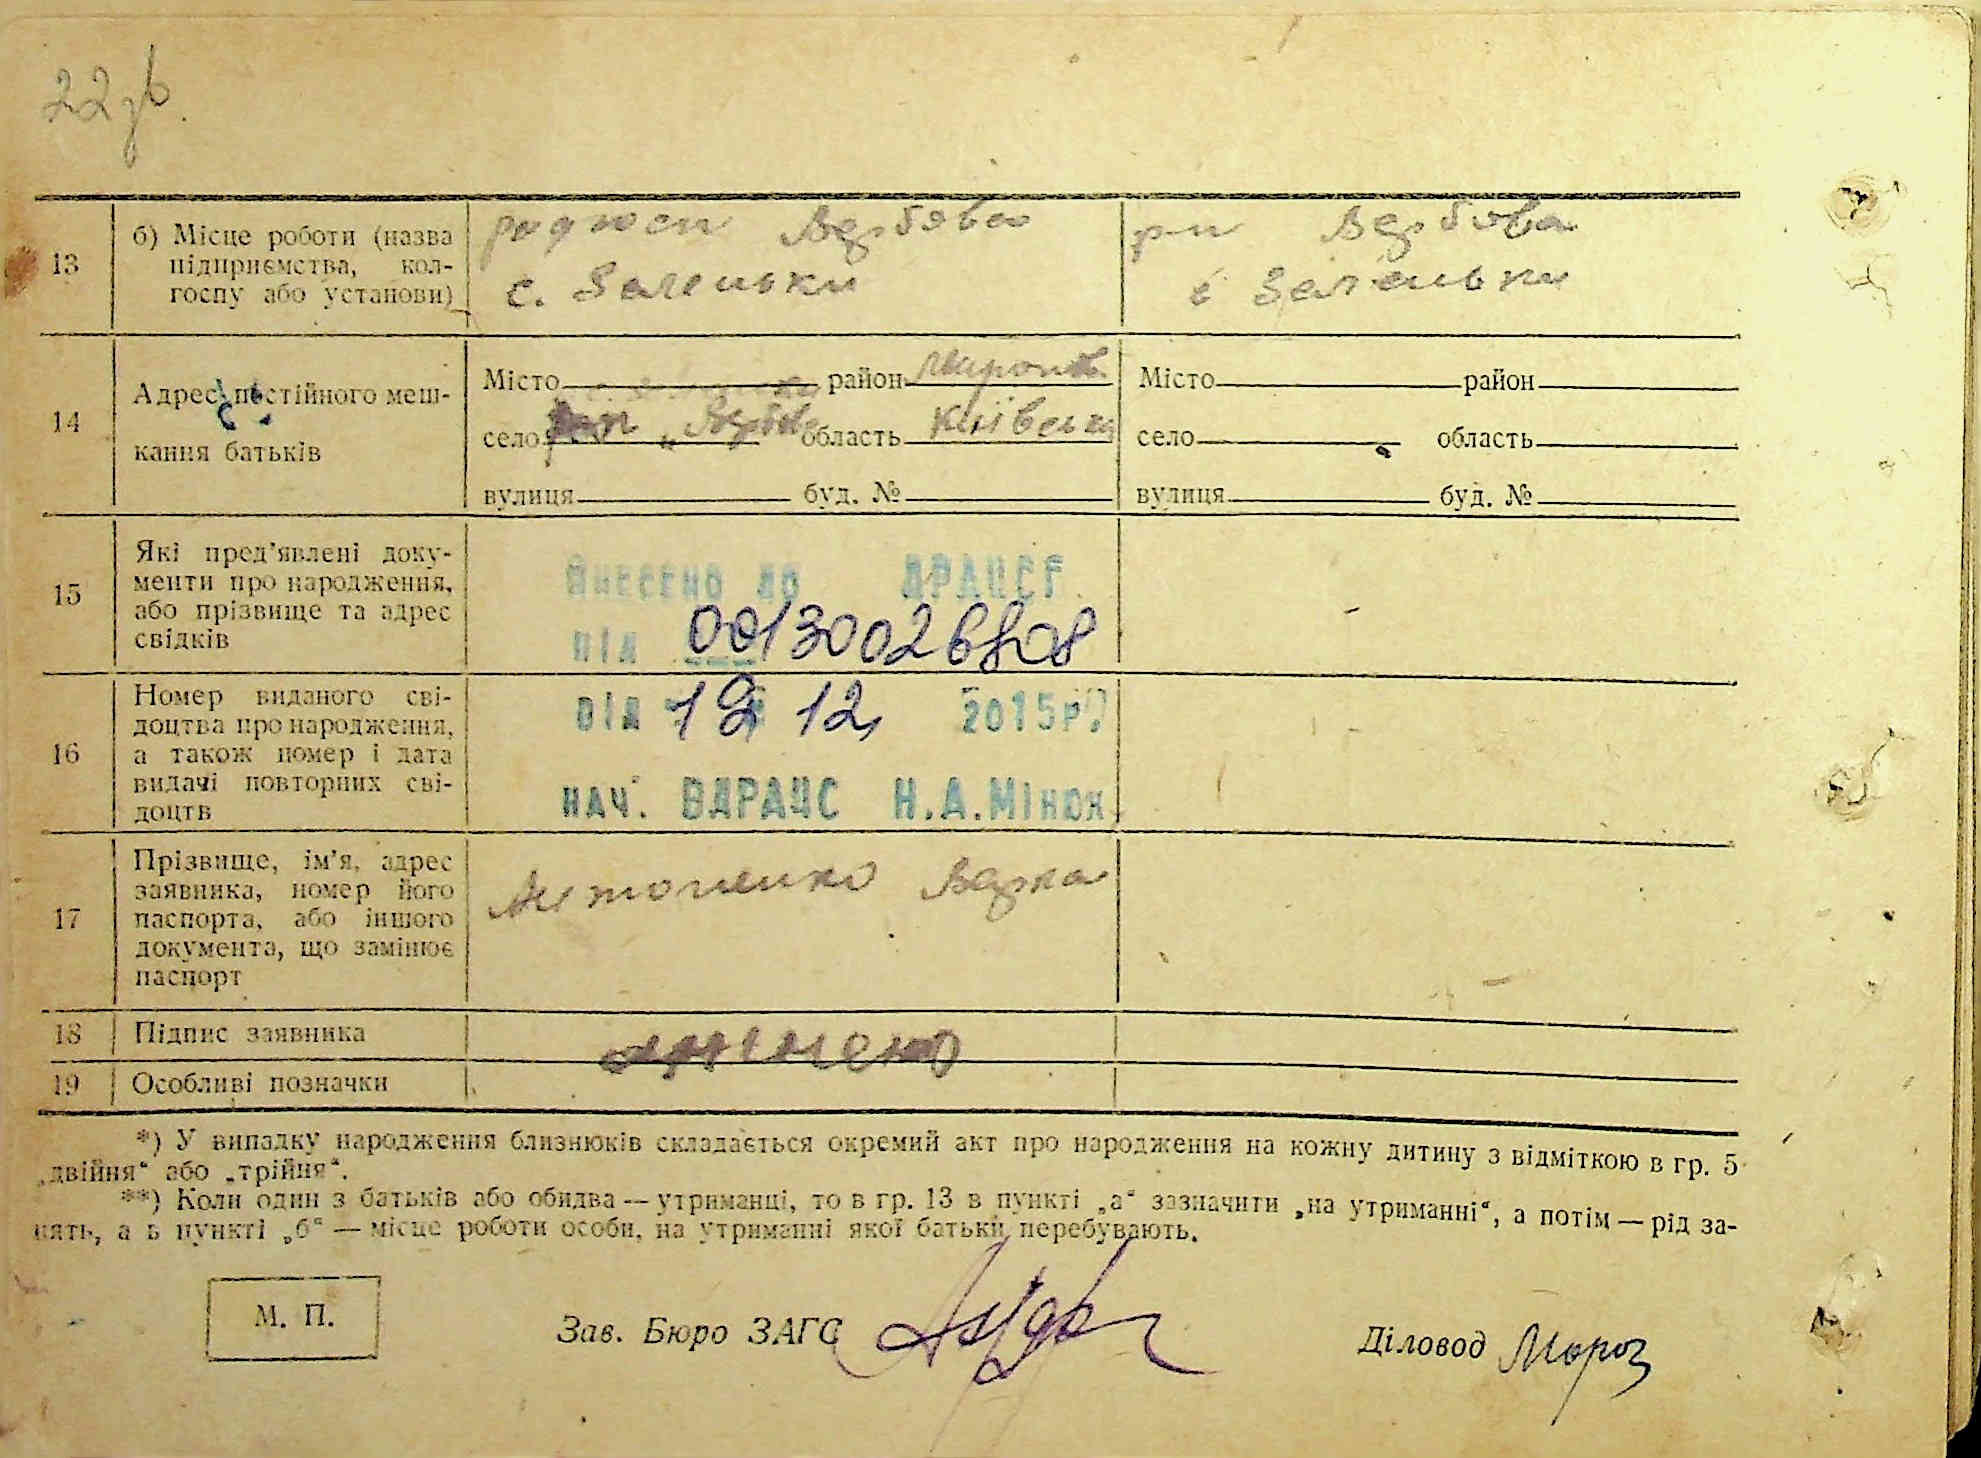 22 зв.
13
б) Місце роботи (назва
підприємства, кол-
госпу або установи)
радгосп Вербова
с. Зеленьки
р-п Вербова
с Зеленьки
14
Адрес постійного меш-
кання батьків
Місто район Миронів
село область Київська
вулиця буд. №
Місто район
село область
вулиця буд. №
15
Які пред'явлені доку-
менти про народження,
або прізвище та адрес
свідків
Внесено до ДРАЦСГ
під 00130026808
16
Номер виданого сві-
доцтва про народження,
а також номер і дата
видачі повторних сві-
доцтв
від 12 2015р.
нач. ВДРАЦС Н.А.Мінюк
17
Прізвище, ім'я, адрес
заявника, номер його
паспорта, або іншого
документа, що замінює
паспорт
Антоненко
18
Підпис заявника
19
Особливі позначки
*) У випадку народження близнюків складається окремий акт про народження на кожну дитину з відміткою в гр. 5
„двійня“ або „трійня“.
**) Коли один з батьків або обидва — утриманці, то в гр. 13 в пункті „а“ зазначити „на утриманні“, а потім — рід за-
нять, а в пункті „б“ — місце роботи особи, на утриманні якої батьки перебувають.
М. П.
Зав. Бюро ЗАГС
Діловод Мороз